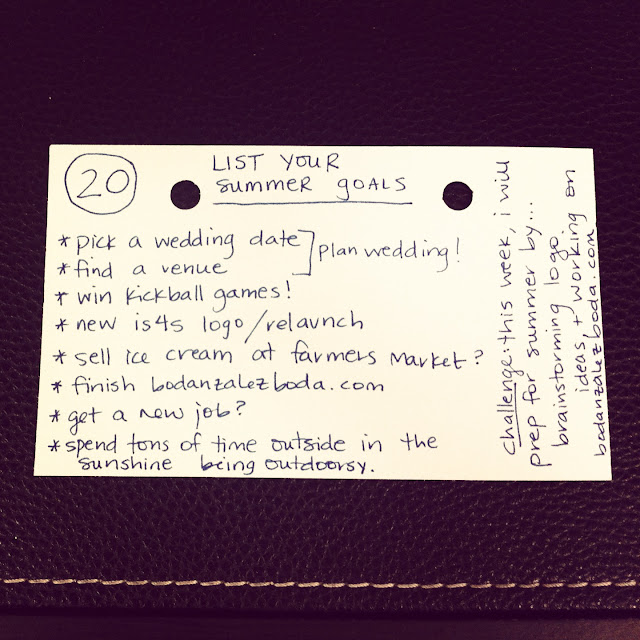 20
LIST YOUR
SUMMER GOALS
* pick a wedding date
* find a venue
plan wedding!
* win kickball games!
* new is4s logo/relaunch
* sell ice cream at farmers market?
* finish bodanzalezboda.com
* get a new job?
* spend tons of time outside in the
sunshine being outdoorsy.
challenge: this week, i will
prep for summer by...
brainstorming logo
ideas, + working on
bodanzalezboda.com